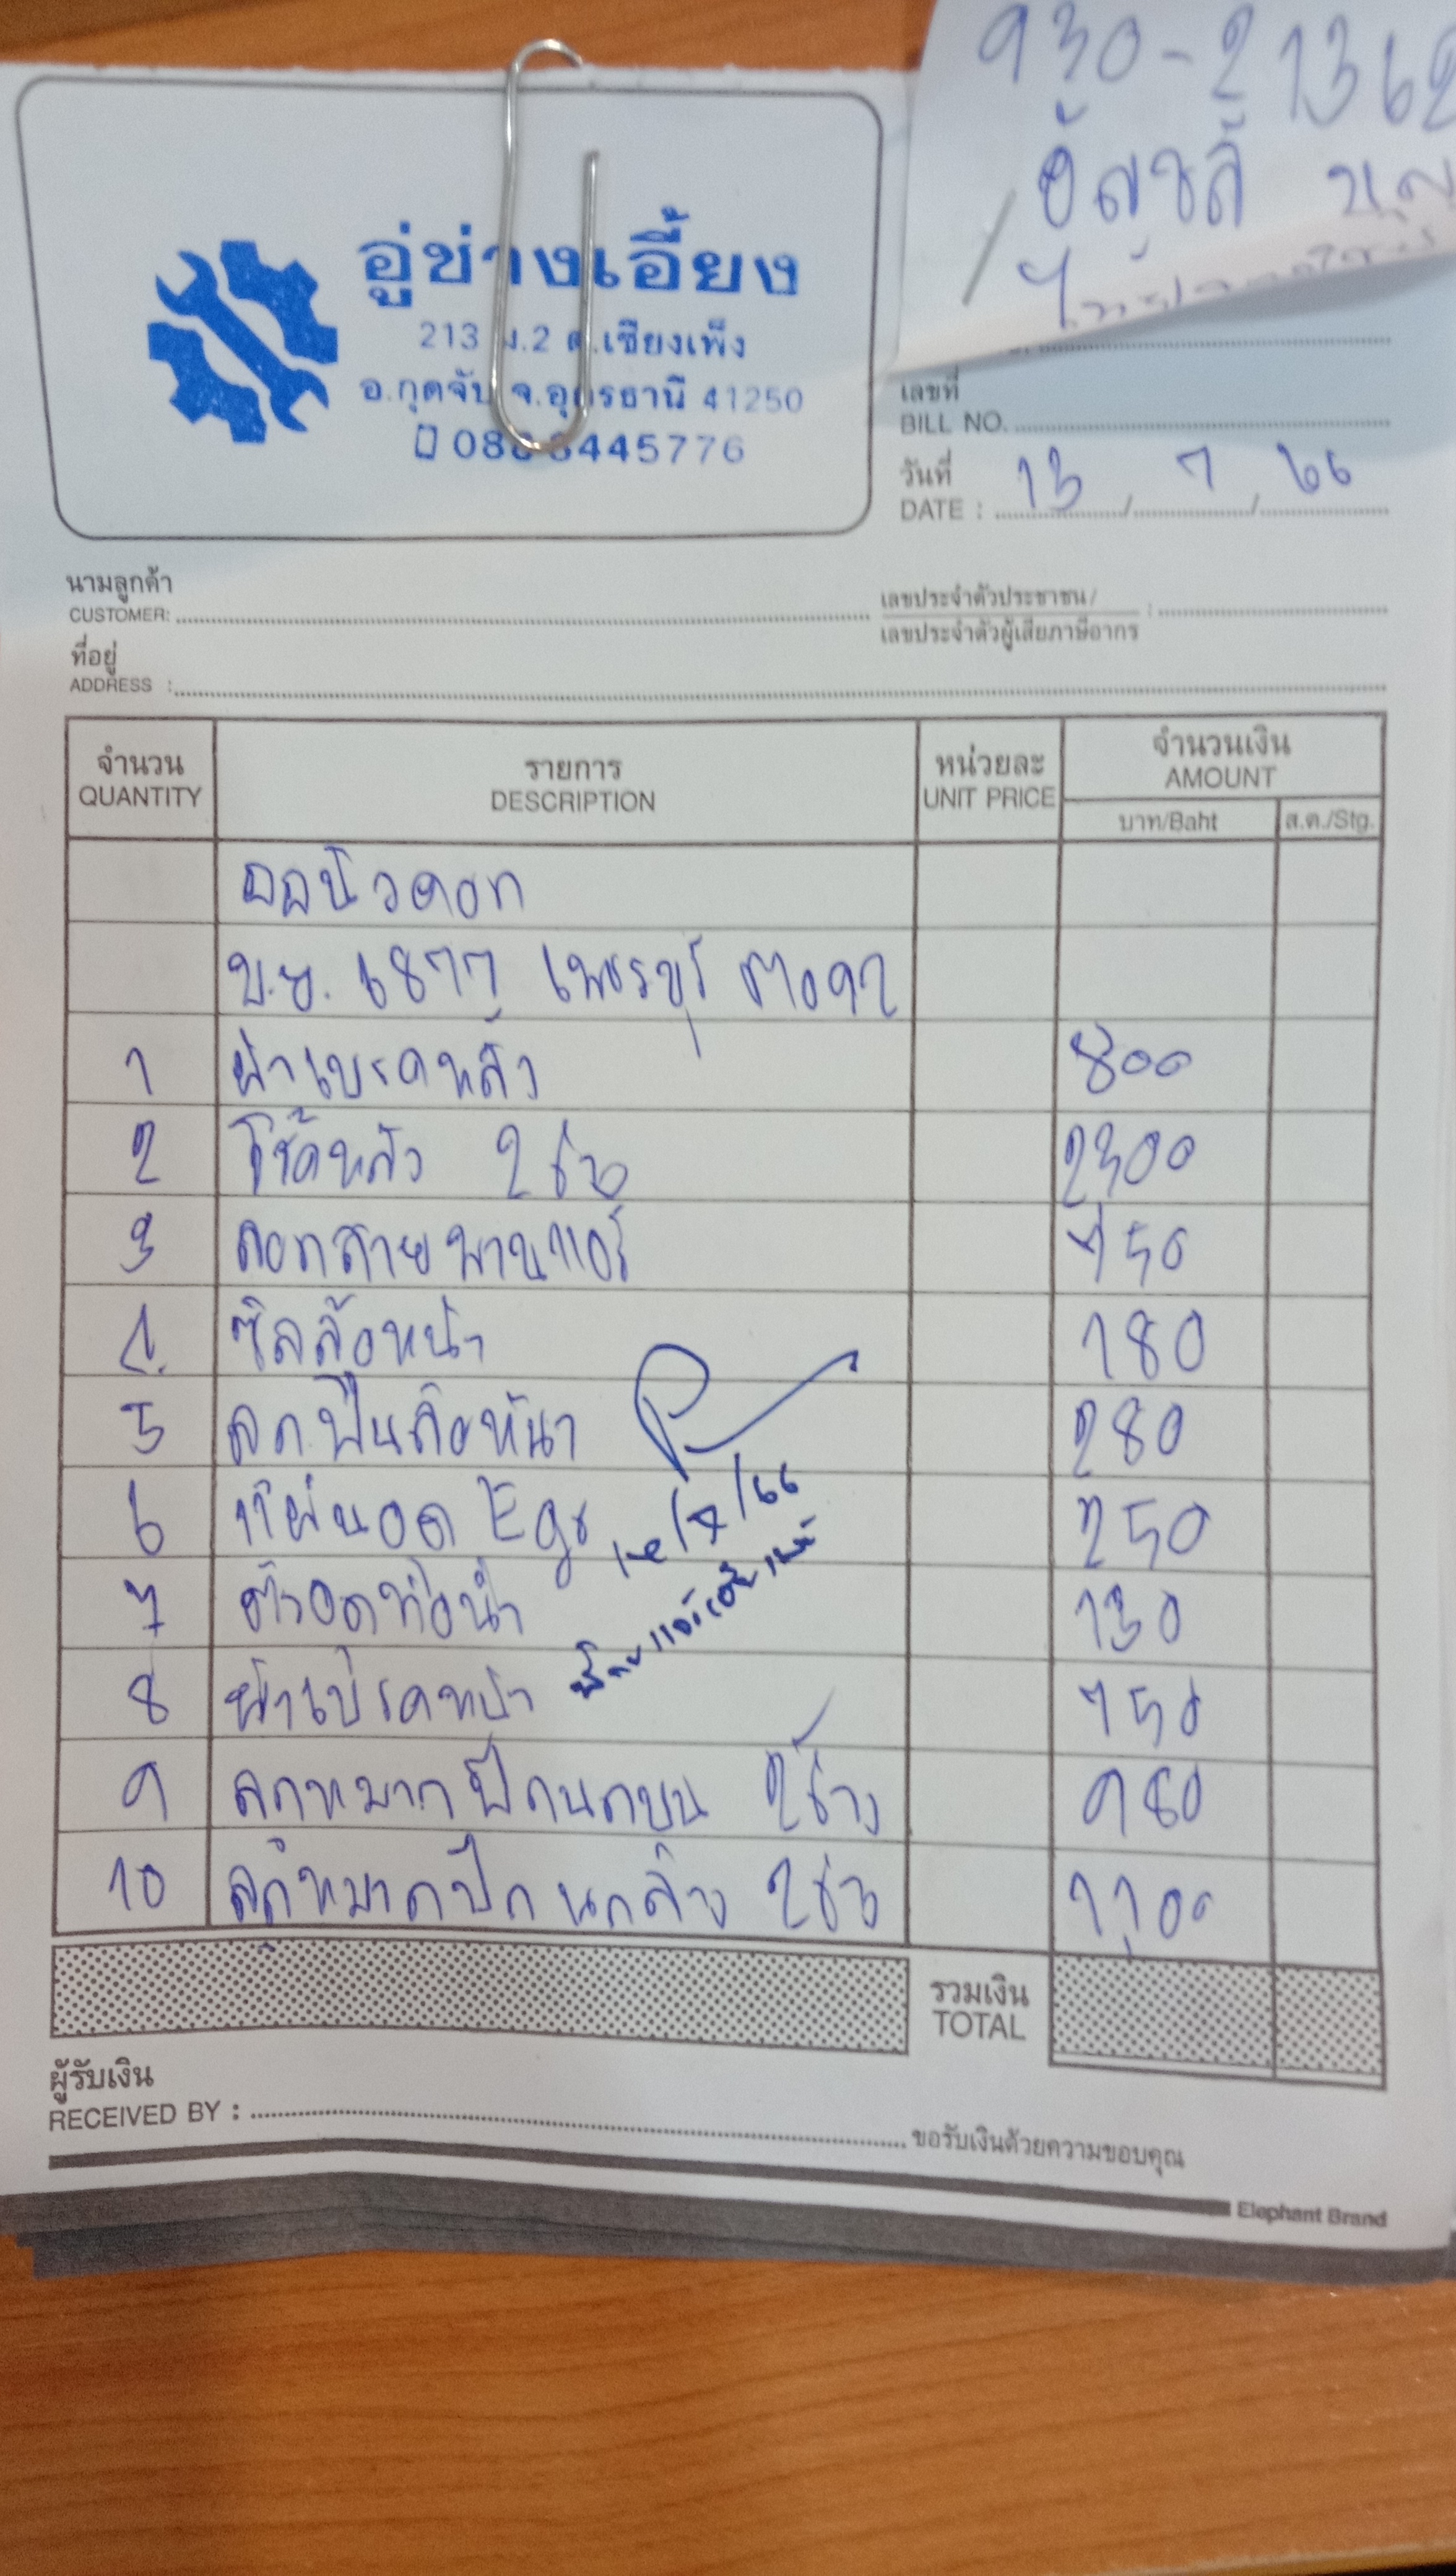 930-21362
อัญชลี
อู่ช่างเอี้ยง
213 ม.2 ต.เชียงเพ็ง
อ.กุดจับ จ.อุดรธานี 41250
445776
เลขที่
BILL NO.
วันที่
DATE : 13 / 7 / 66
นามลูกค้า
CUSTOMER:
เลขประจำตัวประชาชน /
เลขประจำตัวผู้เสียภาษีอากร :
ที่อยู่
ADDRESS :
จำนวน รายการ หน่วยละ จำนวนเงิน
QUANTITY DESCRIPTION UNIT PRICE AMOUNT
บาท/Baht ส.ต./Stg.
ออนิวคอก
บ.ย. 6877 เพชรบุรี
1 ผ้าเบรคหลัง 800
2 โช้คหลัง 2 ข้าง 2300
3 ลอกสายพานแอร์ 750
4 ซิลล้อหน้า 180
5 ลูกปืนล้อหน้า 280
6 แผ่นอุด Egr 250
7 ตัวอุดท่อน้ำ 130
8 ผ้าเบรคหน้า 750
9 ลูกหมากปีกนกบน 2 ข้าง 980
10 ลูกหมากปีกนกล่าง 2 ข้าง 1,100
รวมเงิน
TOTAL
ผู้รับเงิน
RECEIVED BY :
ขอรับเงินด้วยความขอบคุณ
Elephant Brand